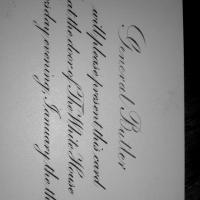 General Butler
will please present this card
at the door of The White House
evening, January the